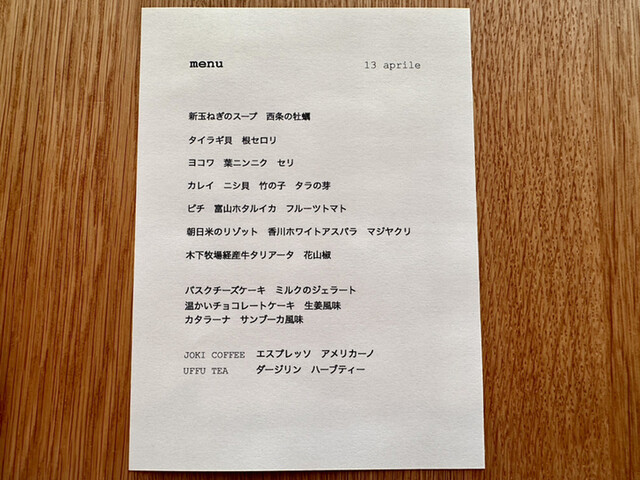 menu 13 aprile
新玉ねぎのスープ 西条の牡蠣
タイラギ貝 根セロリ
ヨコワ 葉ニンニク セリ
カレイ ニシ貝 竹の子 タラの芽
ピチ 富山ホタルイカ フルーツトマト
朝日米のリゾット 香川ホワイトアスパラ マジヤクリ
木下牧場経産牛タリアータ 花山椒
バスクチーズケーキ ミルクのジェラート
温かいチョコレートケーキ 生姜風味
カタラーナ サンブーカ風味
JOKI COFFEE エスプレッソ アメリカーノ
UFFU TEA ダージリン ハーブティー